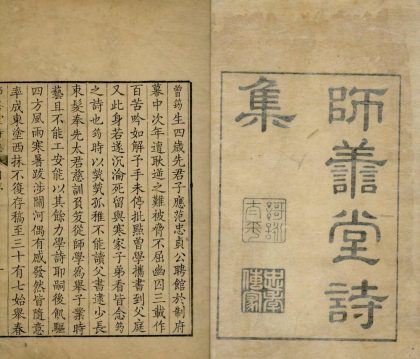 師譱堂詩
集
忠孝
傳家
曾筠生四歲先君子應范忠貞公聘館於制府
幕中次年遭耿逆之難被脅不屈幽囚三載作
百苦吟如解子手未停批點曾學攜書到父庭
又此身若遂沉淪死留與寒家子弟看皆念筠
之詩也筠時以煢煢孤稚不能讀父書逮少長
束髮奉先太君慈訓負笈從師學為舉子業時
藝且不能工安能以其餘力學詩耶嗣後飢驅
四方風雨寒暑跋涉關河偶有感發然皆隨意
率成東塗西抹不復存稿至三十有七始舉春